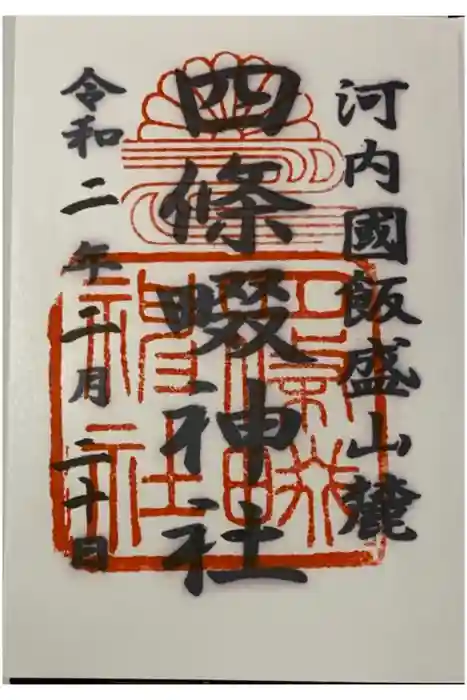 河内國飯盛山麓
四條畷神社
令和二年二月二十日
四條畷
神社